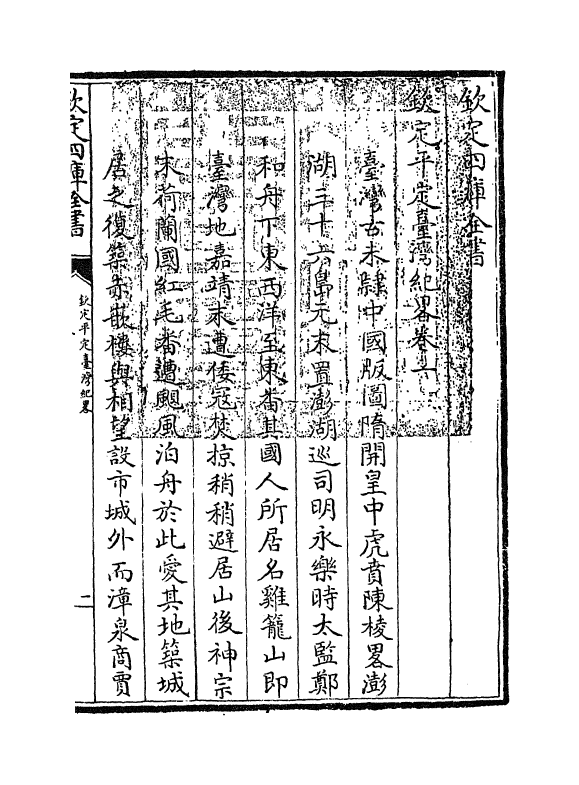 欽定四庫全書
欽定平定臺灣紀畧卷一
臺灣古未隸中國版圖隋開皇中虎賁陳稜畧澎
湖三十六島元末置澎湖巡司明永樂時太監鄭
和舟下東西洋至東番其國人所居名雞籠山即
臺灣地嘉靖末遭倭寇焚掠稍稍避居山後神宗
末荷蘭國紅毛番遭颶風泊舟於此愛其地築城
居之復築赤嵌樓與相望設市城外而漳泉商賈
欽定四庫全書
欽定平定臺灣紀畧